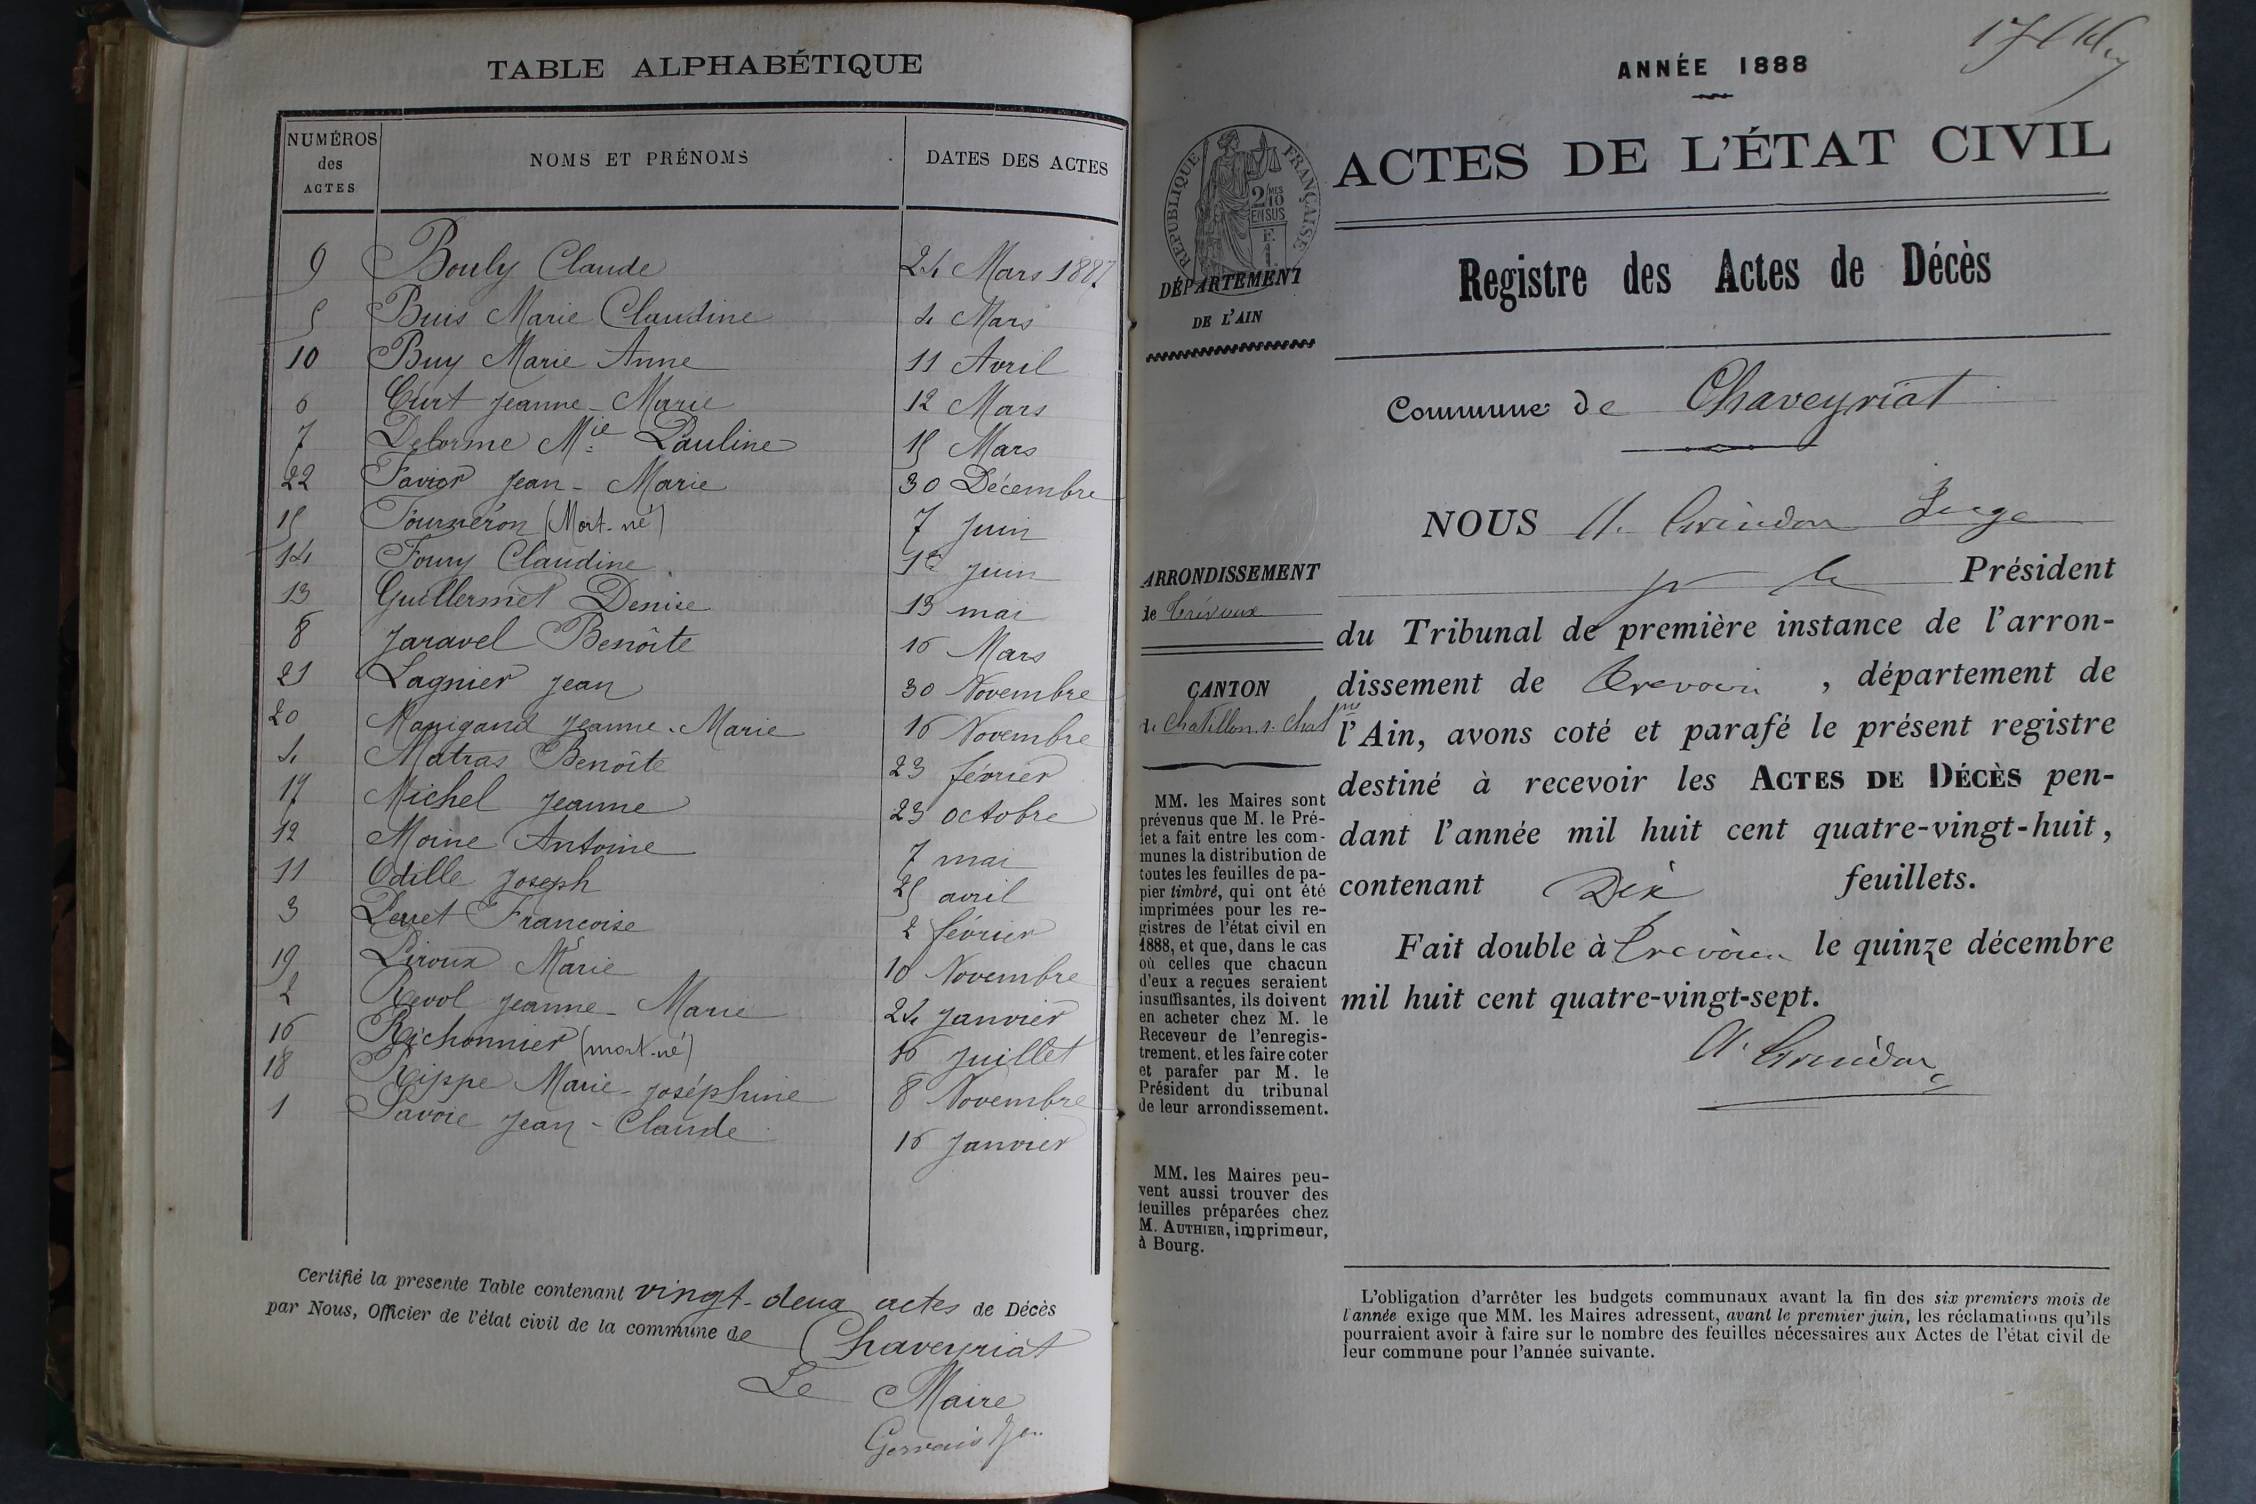 TABLE ALPHABÉTIQUE
NUMÉROS des ACTES NOMS ET PRÉNOMS DATES DES ACTES
9 Bouly Claude 24 Mars 1887
5 Buis Marie Claudine 4 Mars
10 Buy Marie Anne 11 Avril
6 Curt Jeanne-Marie 12 Mars
7 Delorme Mie Pauline 15 Mars
22 Favier Jean-Marie 30 Décembre
15 Fourneron (Mort-né) 7 Juin
14 Foury Claudine 1er Juin
13 Guillermet Denise 13 mai
8 Jaravel Benoîte 16 Mars
21 Lagnier Jean 30 Novembre
20 Manigand Jeanne-Marie 16 Novembre
4 Matras Benoîte 23 février
17 Michel Jeanne 23 octobre
12 Moine Antoine 7 mai
11 Odille Joseph 25 avril
3 Perret Francoise 2 février
19 Piroux Marie 10 Novembre
2 Revol Jeanne-Marie 24 Janvier
16 Richonnier (mort-né) 16 Juillet
18 Rippe Marie-Joséphine 8 Novembre
1 Savoie Jean-Claude 16 Janvier
Certifié la presente Table contenant vingt-deux actes de Décès
par Nous, Officier de l'état civil de la commune de Chaveyriat
Le Maire
Gervais
ANNÉE 1888
RÉPUBLIQUE FRANÇAISE
2/10 MES
EN SUS
ACTES DE L'ÉTAT CIVIL
Registre des Actes de Décès
DÉPARTEMENT
DE L'AIN
Commune de Chaveyriat
NOUS Juge
Président
ARRONDISSEMENT
de Trévoux
CANTON
de Chatillon s. Chalne
du Tribunal de première instance de l'arron-
dissement de Trevoux, département de
l'Ain, avons coté et parafé le présent registre
destiné à recevoir les ACTES DE DÉCÈS pen-
dant l'année mil huit cent quatre-vingt-huit,
contenant Dix feuillets.
Fait double à Trevoux le quinze décembre
mil huit cent quatre-vingt-sept.
MM. les Maires sont
prévenus que M. le Pré-
fet a fait entre les com-
munes la distribution de
toutes les feuilles de pa-
pier timbré, qui ont été
imprimées pour les re-
gistres de l'état civil en
1888, et que, dans le cas
où celles que chacun
d'eux a reçues seraient
insuffisantes, ils doivent
en acheter chez M. le
Receveur de l'enregis-
trement, et les faire coter
et parafer par M. le
Président du tribunal
de leur arrondissement.
MM. les Maires peu-
vent aussi trouver des
feuilles préparées chez
M. AUTHIER, imprimeur,
à Bourg.
L'obligation d'arrêter les budgets communaux avant la fin des six premiers mois de
l'année exige que MM. les Maires adressent, avant le premier juin, les réclamations qu'ils
pourraient avoir à faire sur le nombre des feuilles nécessaires aux Actes de l'état civil de
leur commune pour l'année suivante.